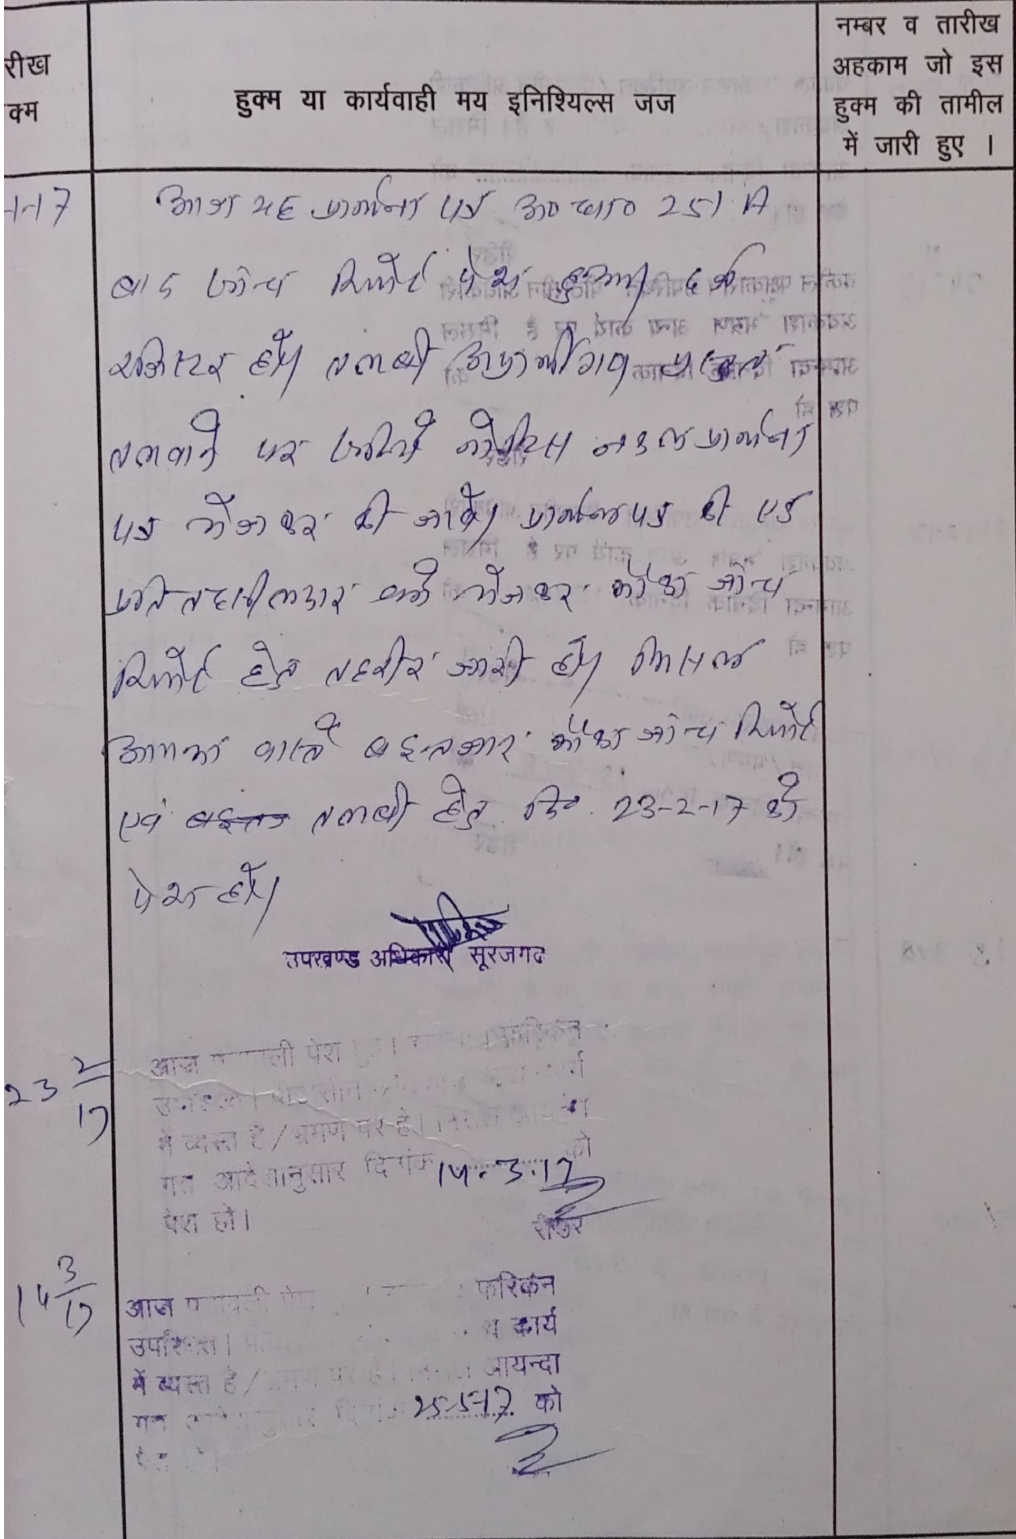 रीख
क्म
हुक्म या कार्यवाही मय इनिश्यिल्स जज
नम्बर व तारीख
अहकाम जो इस
हुक्म की तामील
में जारी हुए ।
-1-17
आज यह प्रार्थना पत्र अ0 धारा 251 A
बाद जाँच रिपोर्ट पेश हुआ। दर्ज
रजिस्टर हो। तलबी अप्रार्थीगण
तलवाने पर जरिये नोटिस नकल प्रार्थना
पत्र भेजकर की जावे। प्रार्थना पत्र की एक
प्रति तहसीलदार को भेजकर मौका जाँच
रिपोर्ट हेतु तहरीर जारी हो। मिसल
आयन्दा वास्ते इन्तजार मौका जाँच रिपोर्ट
एवं तलबी हेतु दि. 23-2-17 को
पेश हो।
उपखण्ड अधिकारी सूरजगढ
23 2/17
आज पेश
में व्यस्त है / भ्रमण पर है।
गत आदेशानुसार दिनांक 14-3-17 को
पेश हो।
रीडर
14 3/17
आज फरिकेन
कार्य
में व्यस्त है / आयन्दा
25-5-17 को